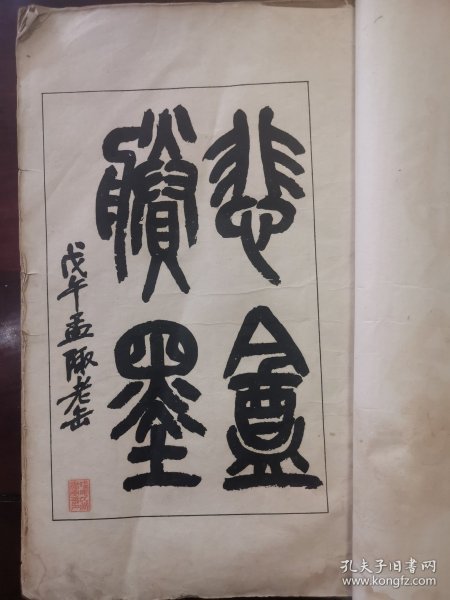 悲盦
賸墨
戊午孟陬老缶
孔夫子旧书网
www.kongfz.com